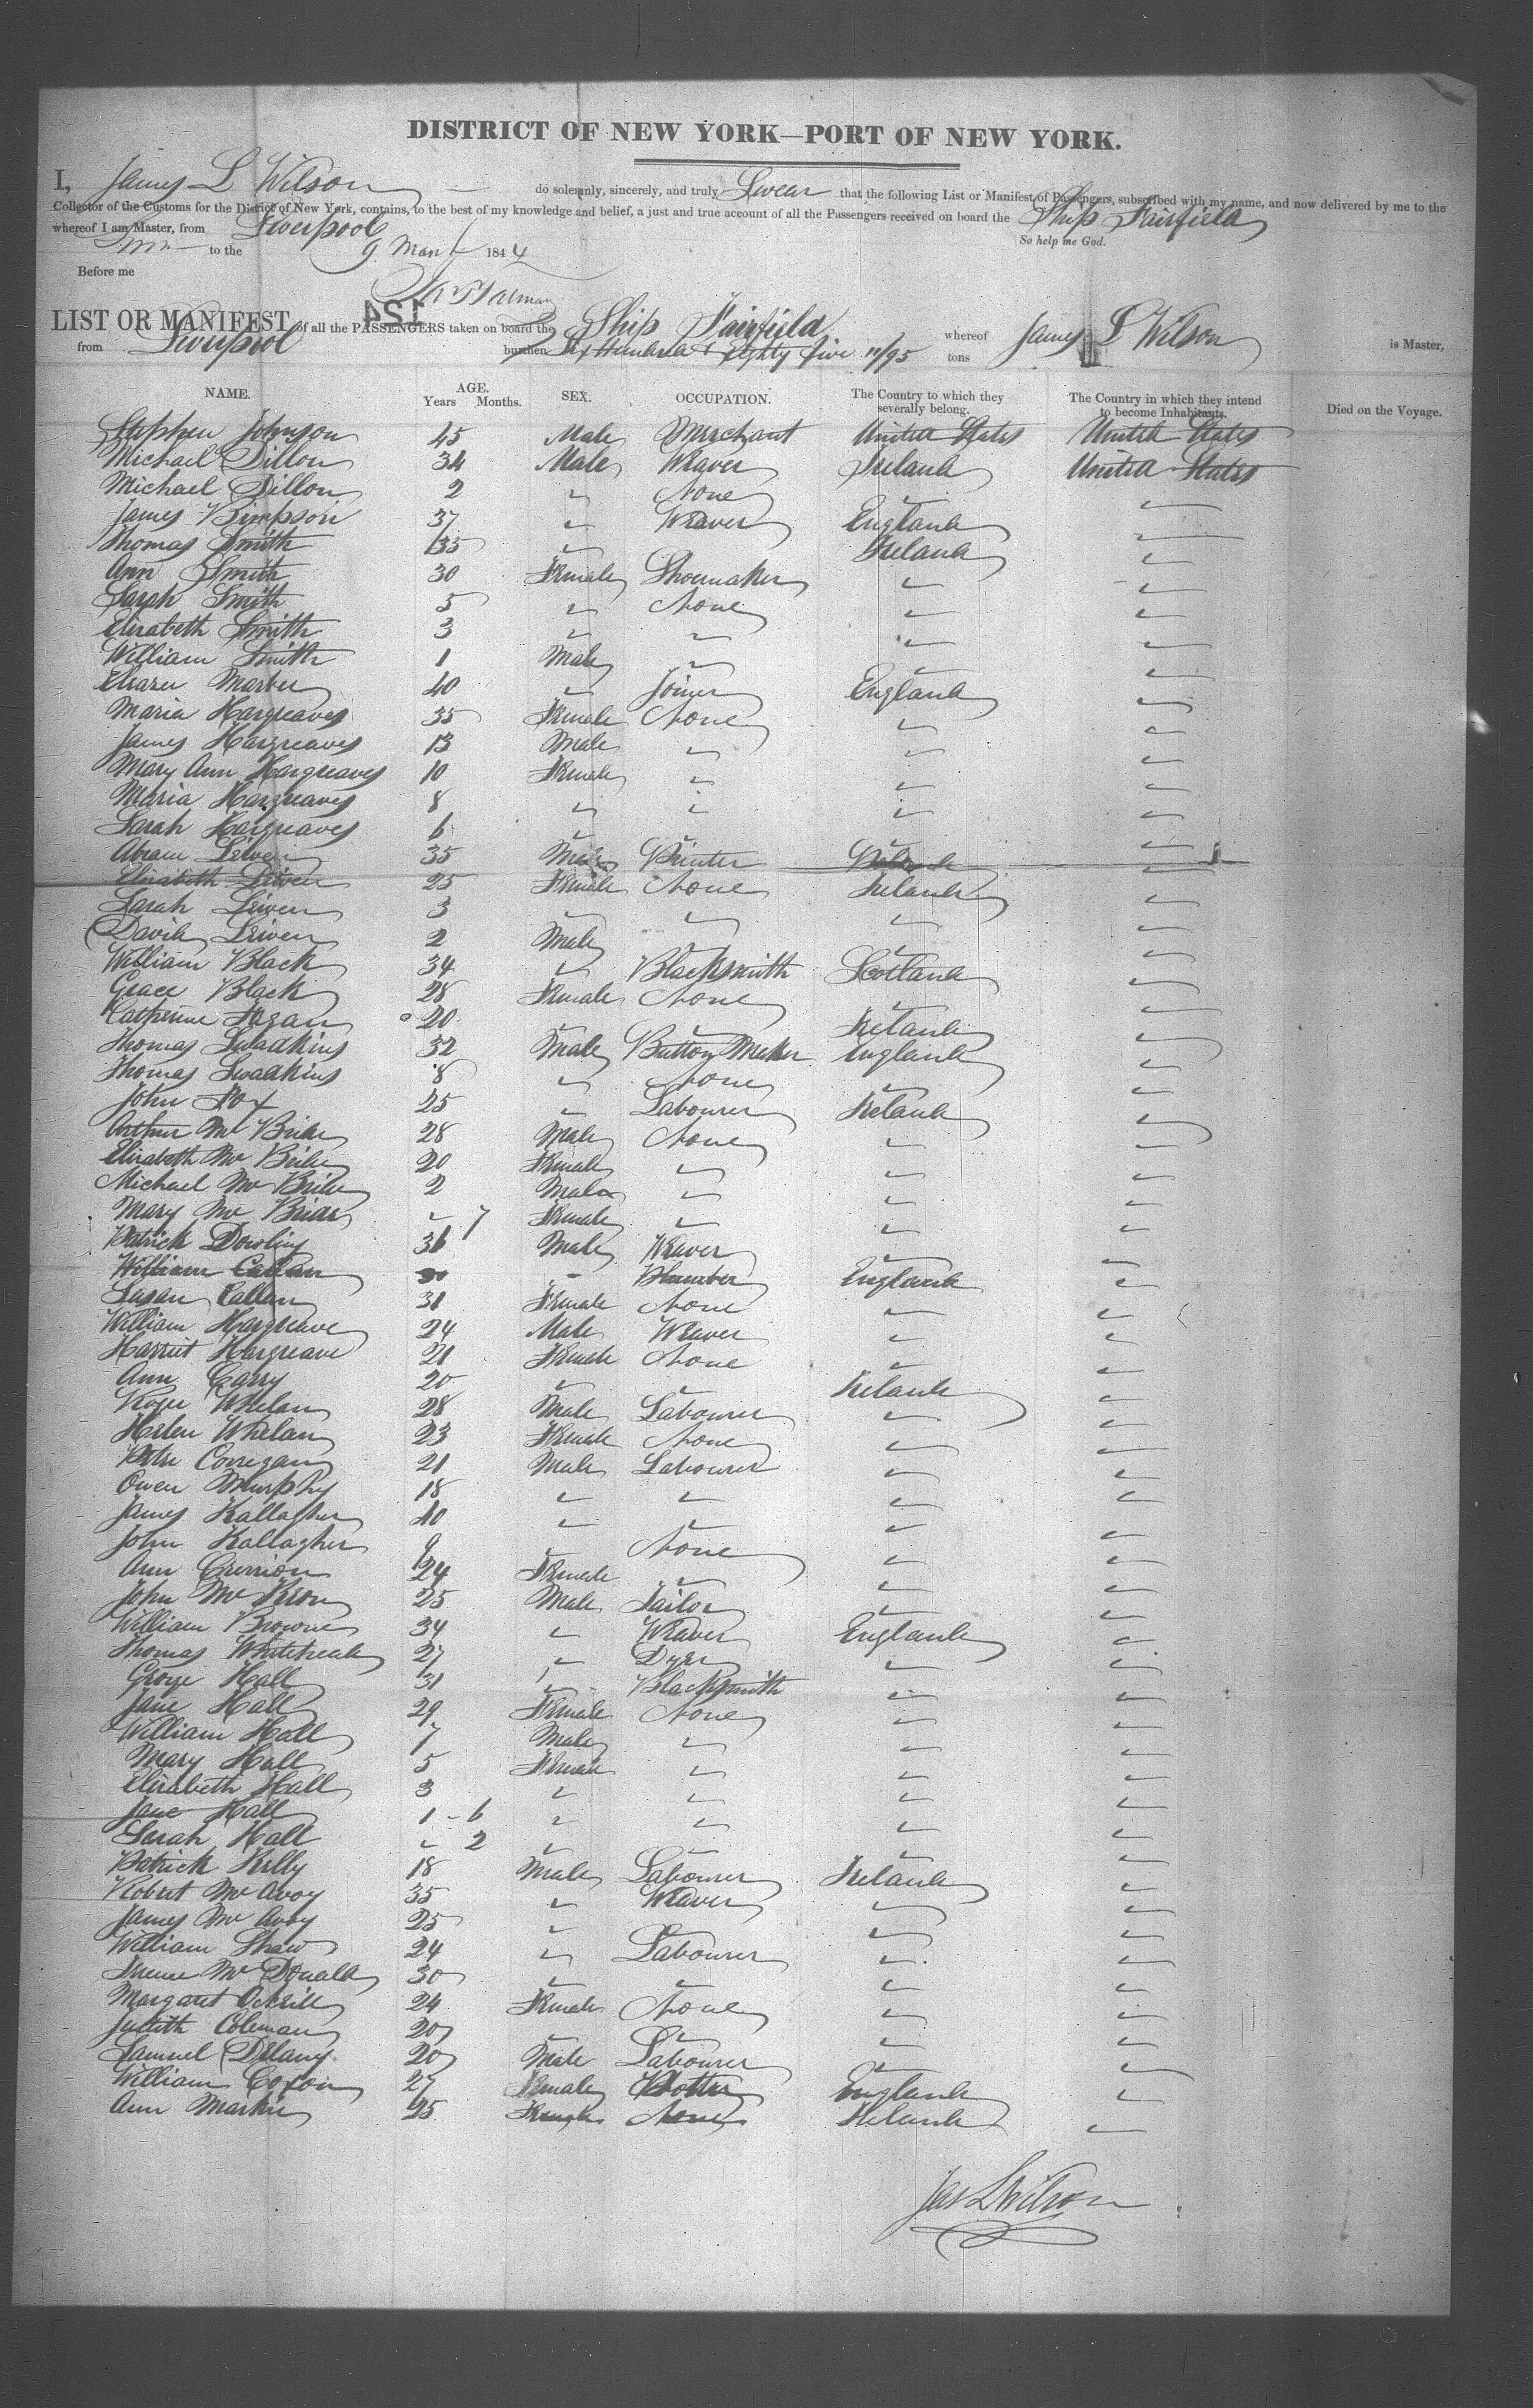 DISTRICT OF NEW YORK—PORT OF NEW YORK.
I, James L Wilson do solemnly, sincerely, and truly Swear that the following List or Manifest of Passengers, subscribed with my name, and now delivered by me to the
Collector of the Customs for the District of New York, contains, to the best of my knowledge and belief, a just and true account of all the Passengers received on board the Ship Fairfield
whereof I am Master, from Liverpool
So help me God.
to the 9 Mar 1844
Before me
124
LIST OR MANIFEST of all the PASSENGERS taken on board the Ship Fairfield whereof James L Wilson is Master,
from Liverpool burthen Six Hundred & Eighty five 11/95 tons
NAME. AGE. Years Months. SEX. OCCUPATION. The Country to which they severally belong. The Country in which they intend to become Inhabitants. Died on the Voyage.
Stephen Johnson 45 Male Merchant United States United States
Michael Dillon 34 Male Weaver Ireland United States
Michael Dillon 2 " None " "
James Bimpson 37 " Weaver England "
Thomas Smith 35 " Ireland "
Ann Smith 30 Female Shoemaker " "
Sarah Smith 5 " None " "
Elizabeth Smith 3 " " " "
William Smith 1 Male " " "
40 " Joiner England "
Maria Hargreaves 35 Female None " "
James Hargreaves 13 Male " " "
Mary Ann Hargreaves 10 Female " " "
Maria Hargreaves 8 " " " "
Sarah Hargreaves 6 " " " "
Abram 35 Male "
Elizabeth 25 Female None Ireland "
Sarah 3 " " " "
David 2 Male " " "
William Black 34 " Blacksmith Scotland "
Grace Black 28 Female None " "
Catherine Fagan 20 " " Ireland "
Thomas Swadkins 32 Male Button Maker England "
Thomas Swadkins 8 " None " "
John Fox 25 " Labourer Ireland "
Arthur Mc Bride 28 Male None " "
Elizabeth Mc Bride 20 Female " " "
Michael Mc Bride 2 Male " " "
Mary Mc Bride " 7 Female " " "
Patrick Dowling 36 Male Weaver " "
William Callan " Plumber England "
Susan Callan 31 Female None " "
William Hargreave 24 Male Weaver " "
Harriet Hargreave 21 Female None " "
Ann Carry 20 " " Ireland "
Roger Whelan 28 Male Labourer " "
Helen Whelan 23 Female None " "
Peter Corregan 21 Male Labourer " "
Owen Murphy 18 " " " "
James Kallagher 40 " " " "
John Kallagher 9 " None " "
Ann 24 Female " " "
John Mc 25 Male Tailor " "
William Browne 34 " Weaver England "
Thomas Whitehead 27 " Dyer " "
George Hall 31 " Blacksmith " "
Jane Hall 29 Female None " "
William Hall 7 Male " " "
Mary Hall 5 Female " " "
Elizabeth Hall 3 " " " "
Jane Hall 1 - 6 " " " "
Sarah Hall " 2 " " " "
Patrick Kelly 18 Male Labourer Ireland "
Robert Mc Avoy 35 " Weaver " "
James Mc Avoy 25 " " " "
William Shaw 24 " Labourer " "
Mc Donald 30 " " " "
Margaret 24 Female None " "
Judith Coleman 20 " " " "
Samuel Delany 20 Male Labourer " "
William Coxon 27 Female Potter England "
Ann 25 Female None Ireland "
Jas L Wilson